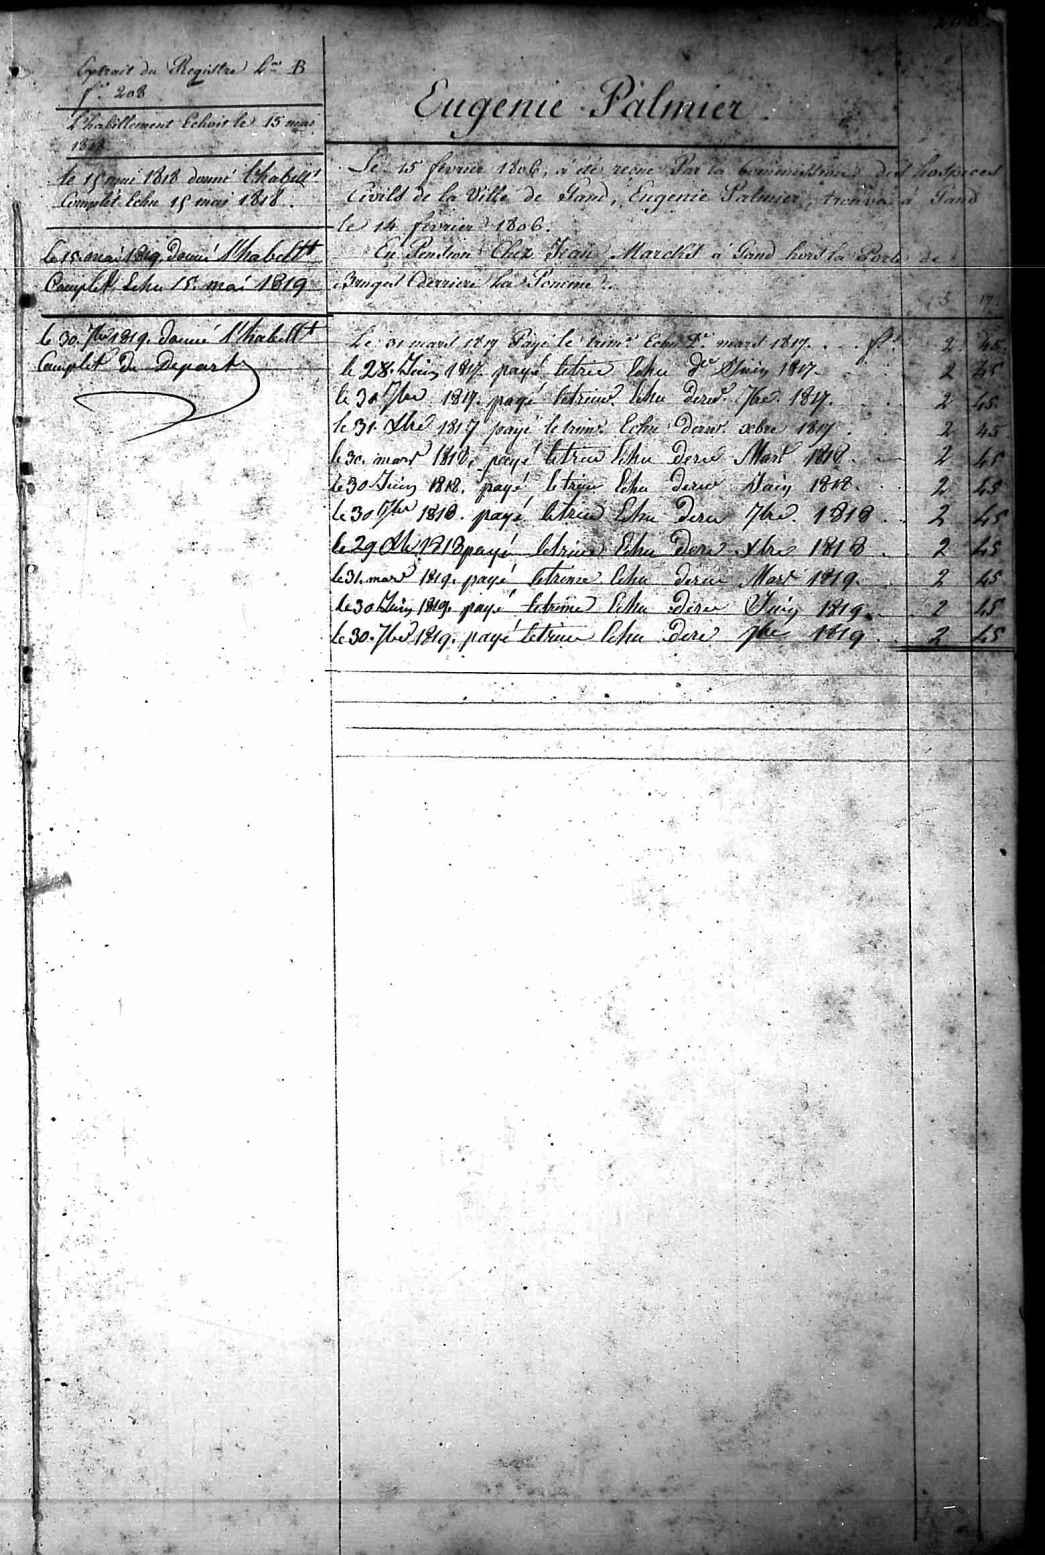 Extrait du Registre L.re B
f.o 208
L'habillement Echoit le 15 mai
1818
le 15 mai 1818 donné l'habill.t
Complet Echu 15 mai 1818.
le 15 mai 1819. Donné l'habill.tt
Complet, Echu 15. mai 1819
le 30. 7bre 1819. Donné l'habill.tt
Complet de Depart
Eugenie Palmier.
Le 15 fevrier 1806, a été recue Par la Commission des hospices
Civils de la Ville de Gand, Eugenie Palmier, trouvée a Gand
le 14 fevrier 1806.
En Pension Chez Jean Marchs a Gand hors la Porte de
Bruges Derriere La Pomme.
Le 31 mars 1817 Payé le trim.e Echu D.r mars 1817. . . . f.s 2 45
le 28 Juin 1817. payé letrie Echu d.r Juin 1817 2 45
le 30 7bre 1817. payé letrim.e Echu dern.r 7bre 1817. 2 45
le 31. Xbre 1817 payé le trim.e Echu dern.r xbre 1817. 2 45
le 30. mars 1818. payé letrie Echu derie Mars 1818. 2 45
le 30 Juin 1818. payé letrie Echu derie Juin 1818. 2 45
le 30 7bre 1818. payé letrie Echu derie 7bre. 1818 2 45
le 29 Xbre 1818 payé letrie Echu dere xbre 1818 2 45
le 31. mars 1819. payé letrime Echu derie Mars 1819. 2 45
le 30 Juin 1819. payé letrime Echu derer Juin 1819. 2 45
le 30. 7bre 1819. payé letrime Echu dere 7bre 1819 2 45